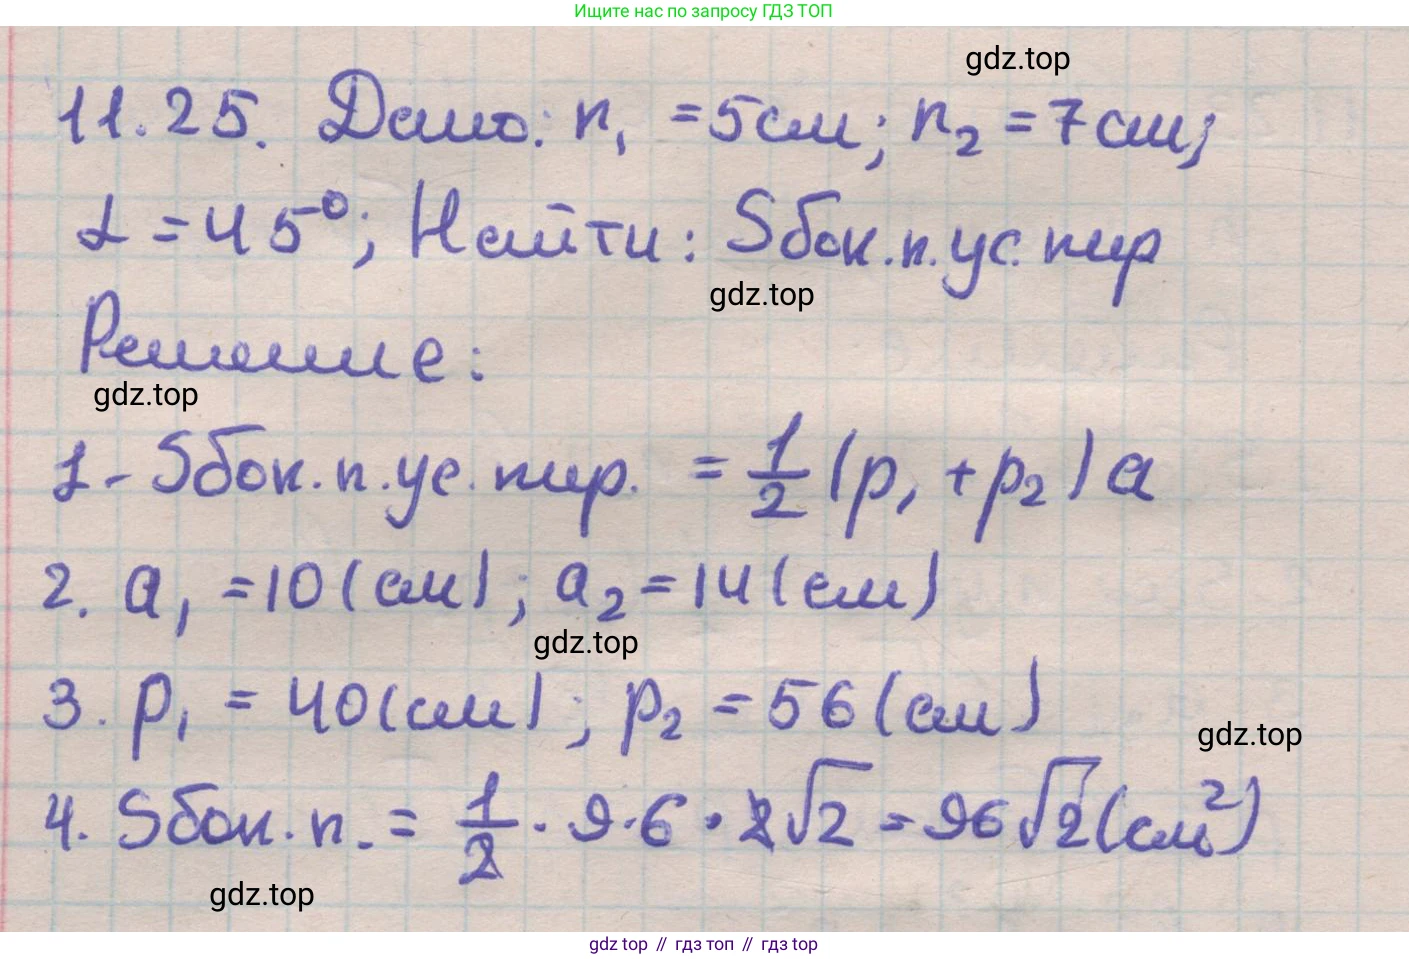 Ищите нас по запросу ГДЗ ТОП
gdz.top
11.25. Дано: r₁ = 5см; r₂ = 7см;
α = 45°; Найти: Sбок.п.ус.пир
gdz.top
Решение:
gdz.top
1- Sбок.п.ус.пир. = 1/2 (p₁ + p₂) a
2. a₁ = 10 (см); a₂ = 14 (см)
gdz.top
3. p₁ = 40 (см); p₂ = 56 (см)
gdz.top
4. Sбок.п. = 1/2 · 9·6 · 2√2 = 96√2 (см²)
gdz.top
gdz top // гдз топ // гдз top